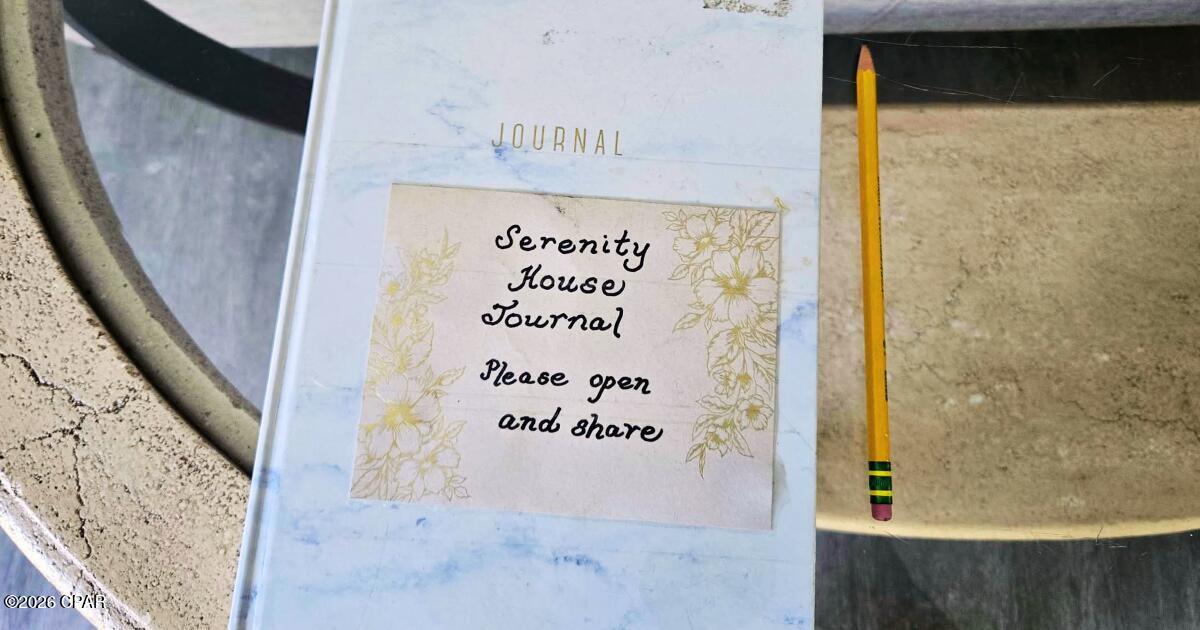 JOURNAL
Serenity
House
Journal
Please open
and share
©2026 CPAR